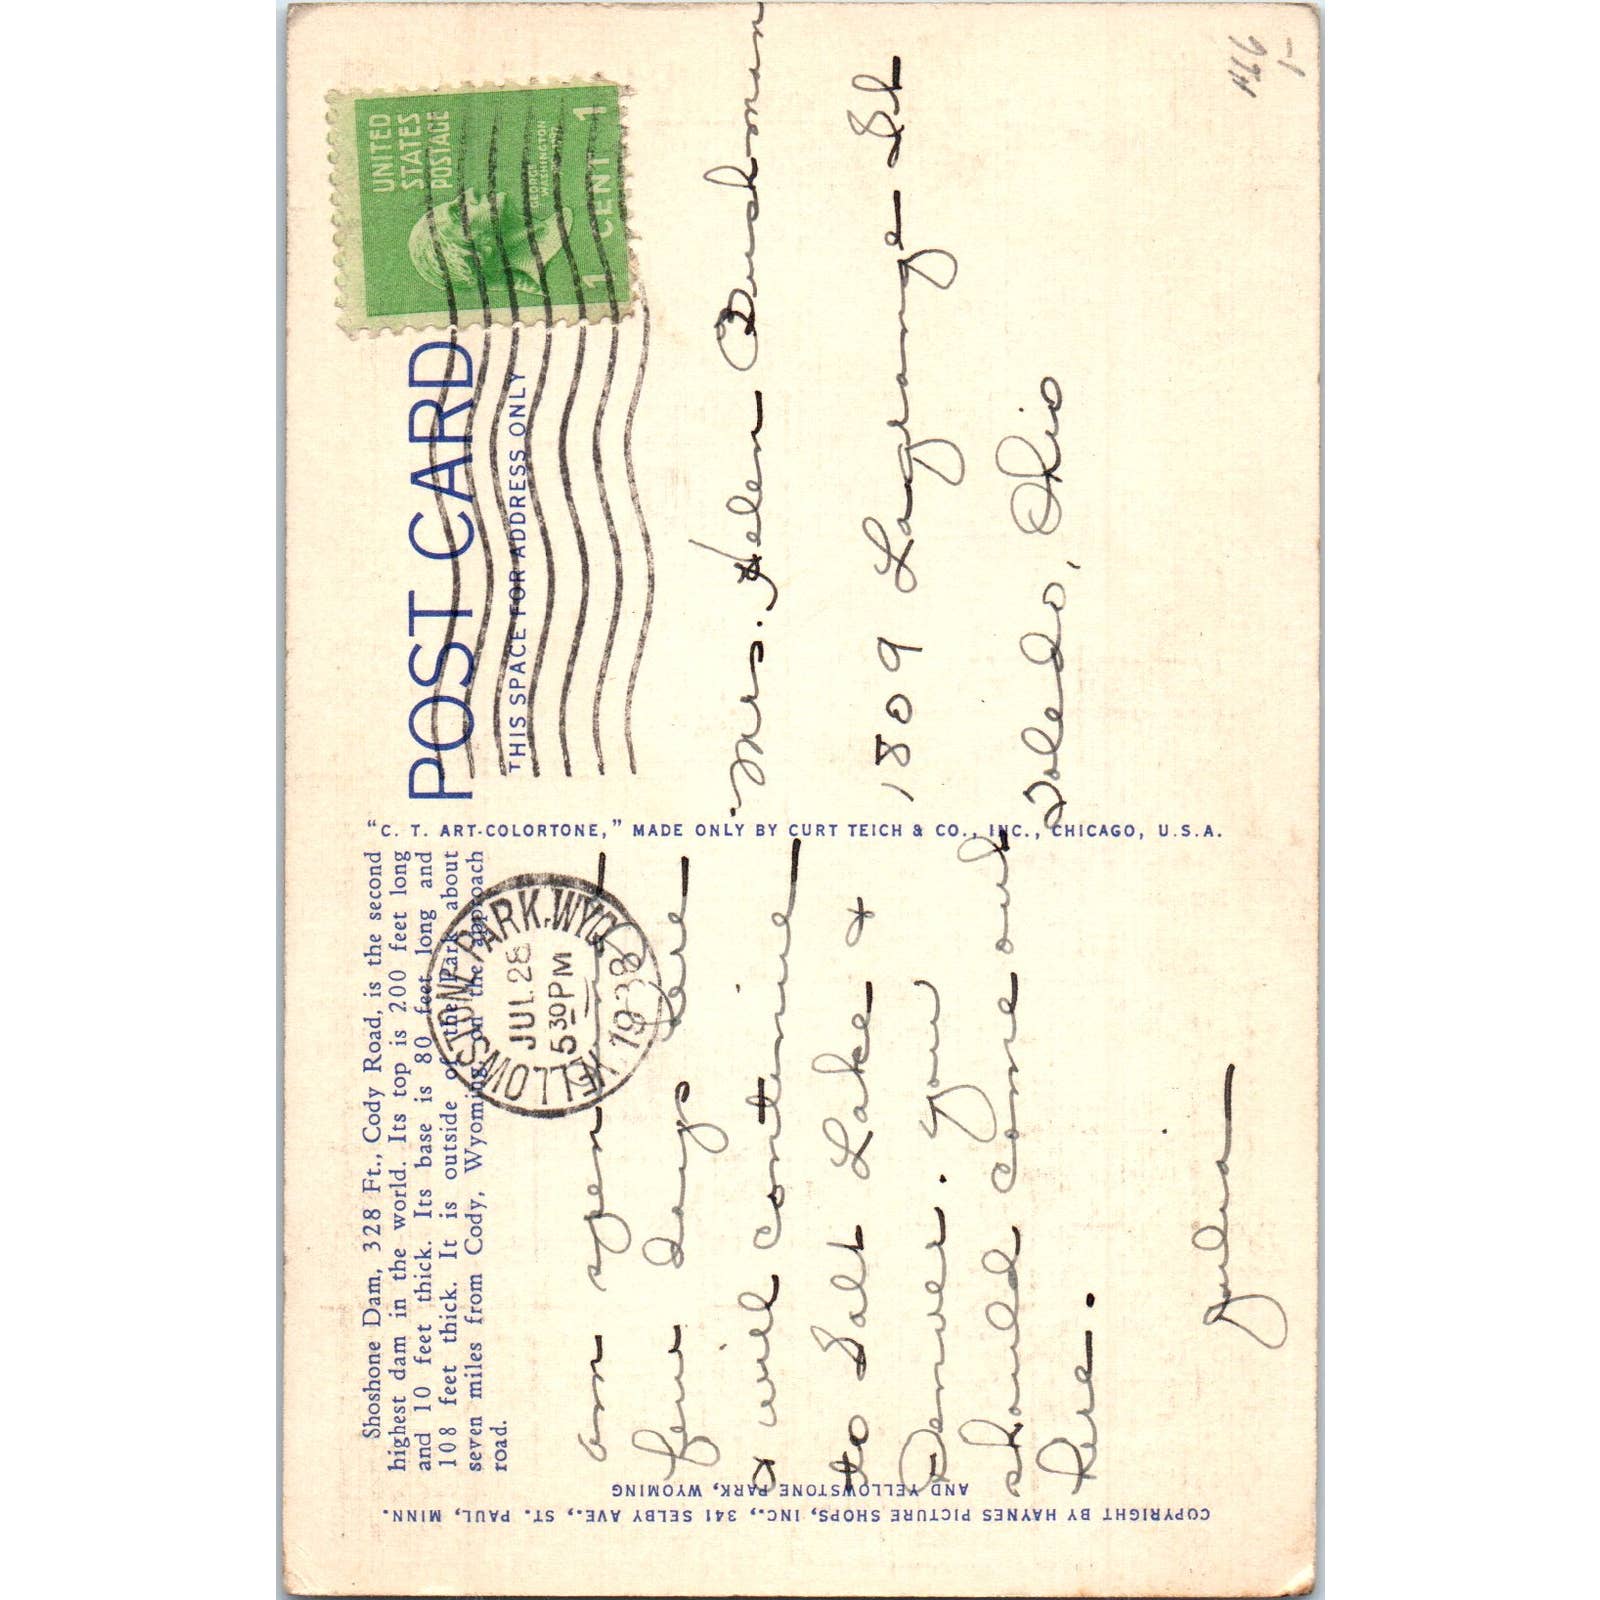 Shoshone Dam, 328 Ft., Cody Road, is the second
highest dam in the world. Its top is 200 feet long
and 10 feet thick. Its base is 80 feet long and
108 feet thick. It is outside of the Park about
seven miles from Cody, Wyoming, on the approach
road.
YELLOWSTONE PARK, WYO.
JUL 28
5 30 PM
1938
am spending
few days here
& will continue
to Salt Lake &
Denver. You
should come out
here.
Julia
COPYRIGHT BY HAYNES PICTURE SHOPS, INC., 341 SELBY AVE., ST. PAUL, MINN.
AND YELLOWSTONE PARK, WYOMING
"C. T. ART-COLORTONE," MADE ONLY BY CURT TEICH & CO., INC., CHICAGO, U.S.A.
POST CARD
THIS SPACE FOR ADDRESS ONLY
UNITED
STATES
POSTAGE
GEORGE
WASHINGTON
1 CENT 1
Mrs. Helen
1809 Lagrange St
Toledo, Ohio